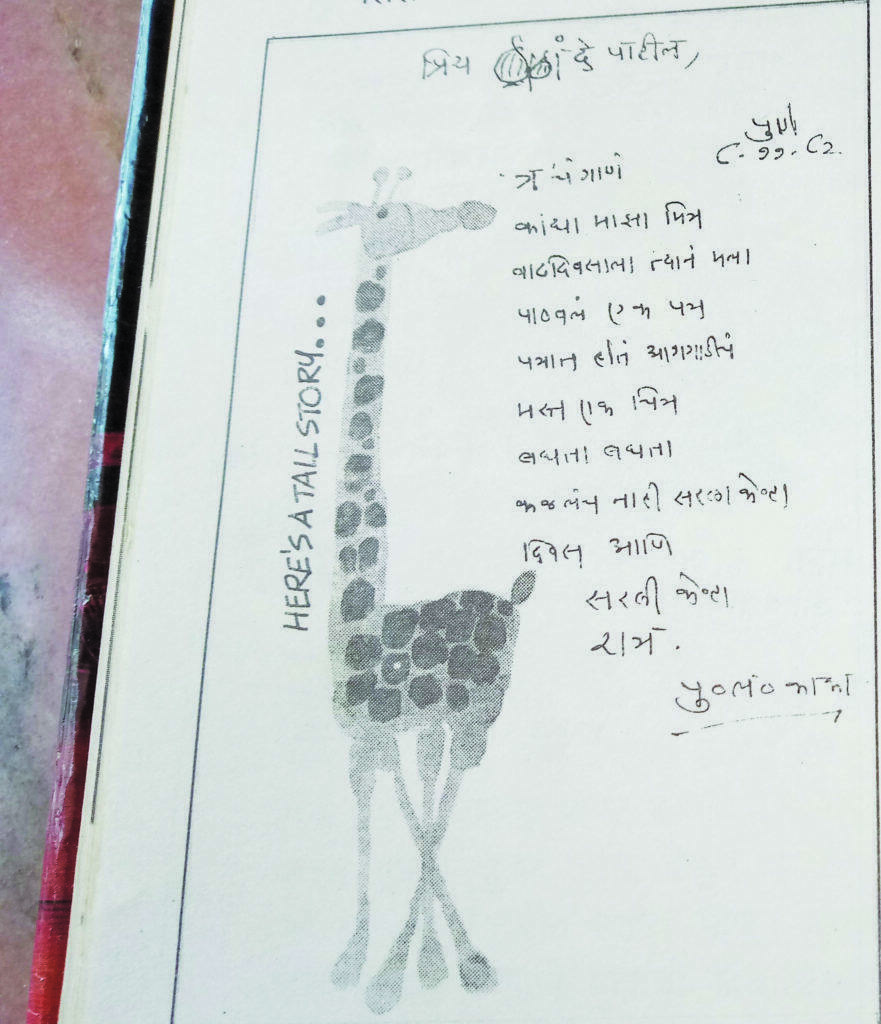 प्रिय दे पाटील,
पुणे
८.११.८२.
त्र चं गाणं
कांद्या माझा मित्र
वाढदिवसाला त्यानं मला
पाठवलं एक पत्र
पत्रात होतं आगगाडीचं
मस्त एक चित्र
बघता बघता
कळलंच नाही सरला केव्हा
दिवस आणि
सरली केव्हा
रात्र.
पु०लं० काका
HERE'S A TALL STORY...